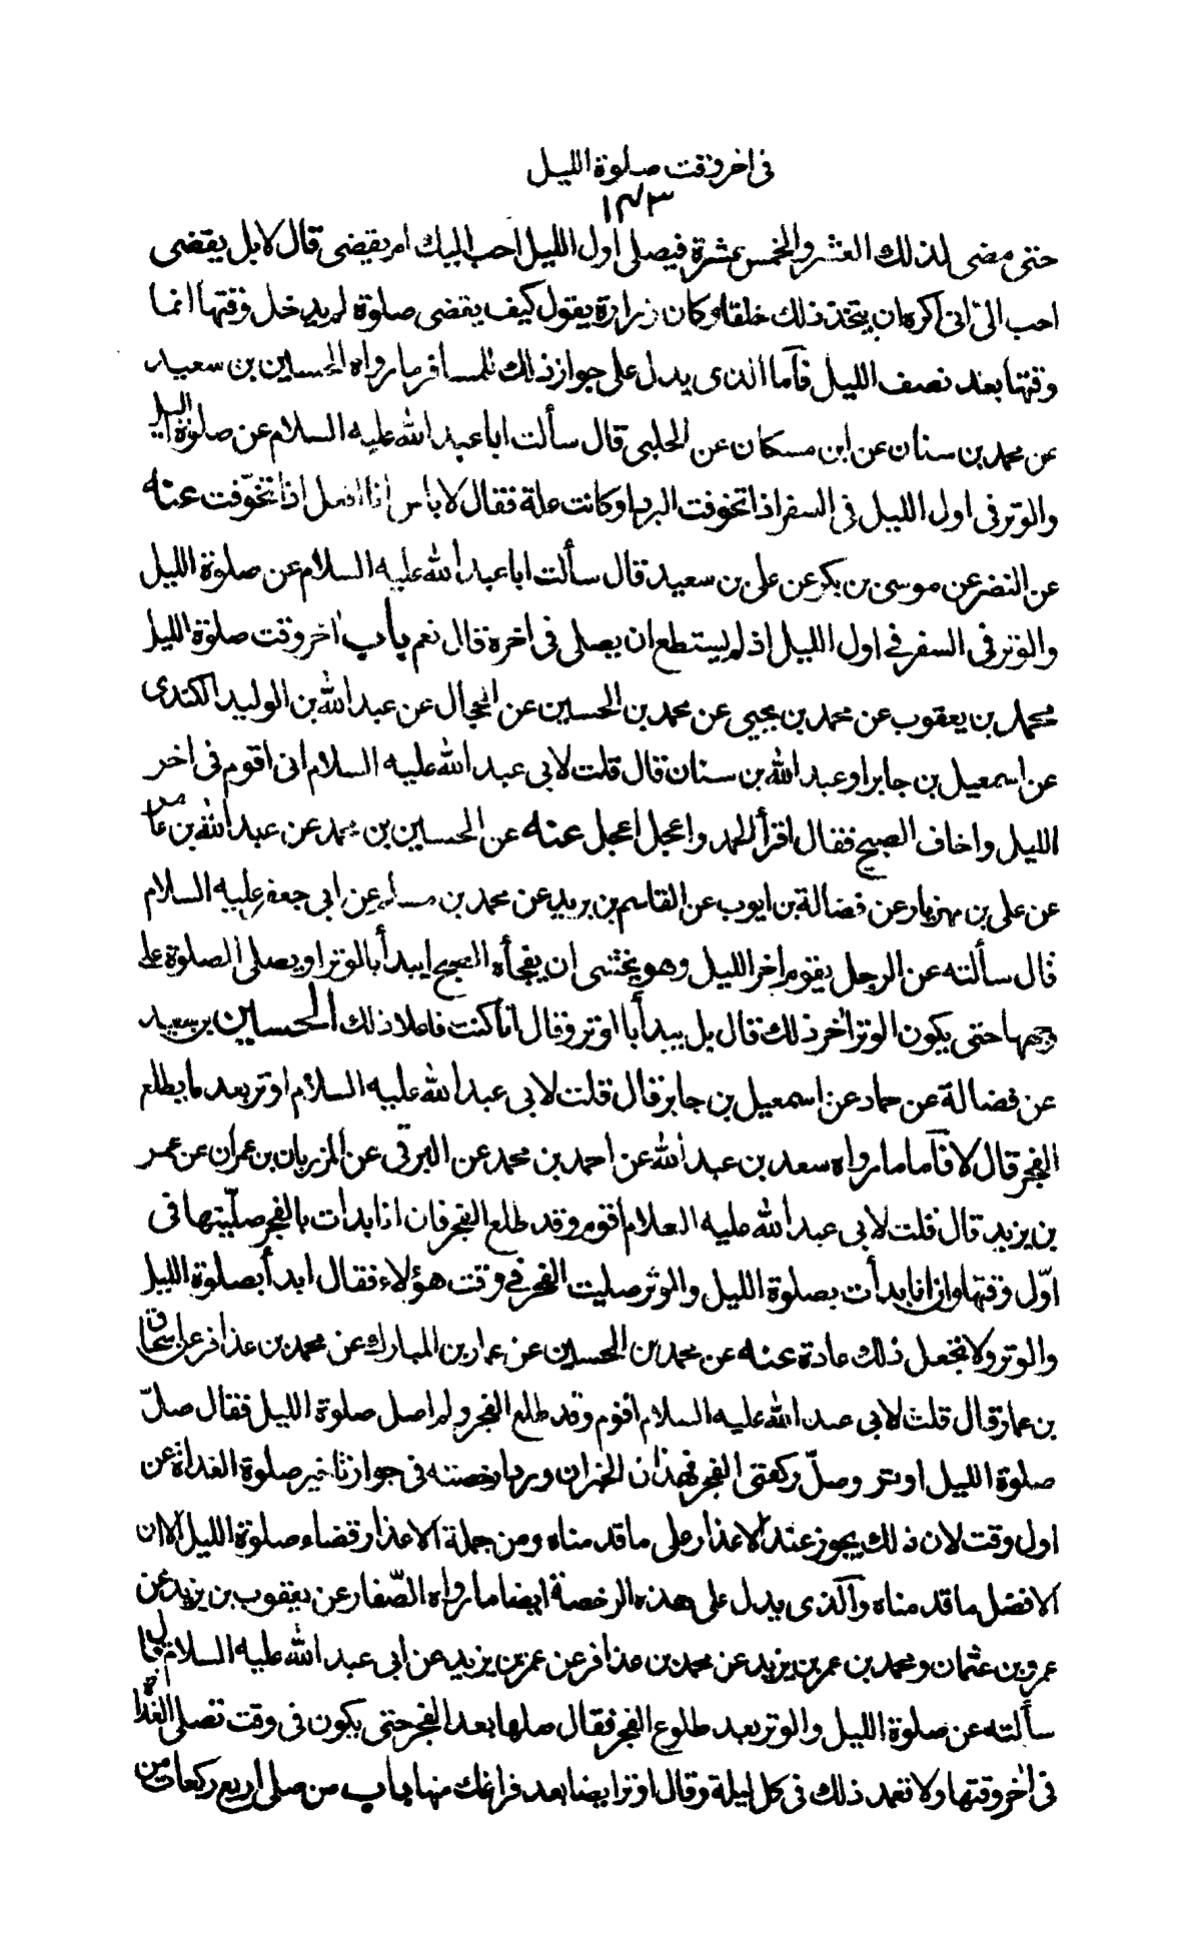 فى اخر وقت صلوة الليل
١٤٣
حتى مضى لذلك العشر والخمس عشرة فيصلى اول الليل احب اليك ام يقضى قال لا بل يقضى
احب الى انى اكره ان يتخذ ذلك خلقا وكان زرارة يقول كيف يقضى صلوة لم يدخل وقتها انما
وقتها بعد نصف الليل فآما الذى يدل على جواز ذلك للمسافر ما رواه الحسين بن سعيد
عن محمد بن سنان عن ابن مسكان عن الحلبى قال سألت ابا عبد الله عليه السلام عن صلوة الليل
والوتر فى اول الليل فى السفر اذا تخوفت البرد او كانت علة فقال لا باس انا افعل اذا تخوّفت عنه
عن النضر عن موسى بن بكر عن على بن سعيد قال سألت ابا عبد الله عليه السلام عن صلوة الليل
والوتر فى السفر فى اول الليل اذ لم يستطع ان يصلى فى اخره قال نعم باب اخر وقت صلوة الليل
محمد بن يعقوب عن محمد بن يحيى عن محمد بن الحسين عن الحجال عن عبد الله بن الوليد الكندى
عن اسمعيل بن جابر او عبد الله بن سنان قال قلت لابى عبد الله عليه السلام انى اقوم فى اخر
الليل واخاف الصبح فقال اقرأ الحمد واعجل اعجل عنه عن الحسين بن محمد عن عبد الله بن عامر
عن على بن مهزيار عن فضالة بن ايوب عن القاسم بن بريد عن محمد بن مسلم عن ابى جعفر عليه السلام
قال سألته عن الرجل يقوم اخر الليل وهو يخشى ان يفجأه الصبح ايبدأ بالوتر او يصلى الصلوة على
وجهها حتى يكون الوتر اخر ذلك قال بل يبدأ بالوتر وقال انا كنت فاعلا ذلك الحسين بن سعيد
عن فضالة عن حماد عن اسمعيل بن جابر قال قلت لابى عبد الله عليه السلام اوتر بعد ما يطلع
الفجر قال لا فآما ما رواه سعد بن عبد الله عن احمد بن محمد عن البرقى عن المرزبان بن عمران عن عمر
بن يزيد قال قلت لابى عبد الله عليه السلام اقوم وقد طلع الفجر فان انا بدات بالفجر صلّيتها فى
اوّل وقتها وان انا بدأت بصلوة الليل والوتر صليت الفجر فى وقت هؤلاء فقال ابدأ بصلوة الليل
والوتر ولا تجعل ذلك عادة عنه عن محمد بن الحسين عن عمار بن المبارك عن محمد بن عذافر عن اسحاق
بن عمار قال قلت لابى عبد الله عليه السلام اقوم وقد طلع الفجر ولم اصل صلوة الليل فقال صلّ
صلوة الليل اوتر وصلّ ركعتى الفجر فهذان الخبران وردا رخصته فى جواز تاخير صلوة الغداة عن
اول وقت لان ذلك يجوز عند الاعذار على ما قدمناه ومن جملة الاعذار قضاء صلوة الليل الا ان
الافضل ما قدمناه وآلذى يدل على هذه الرخصة ايضا ما رواه الصّفار عن يعقوب بن يزيد عن
عمرو بن عثمان ومحمد بن عمر بن يزيد عن محمد بن عذافر عن عمر بن يزيد عن ابى عبد الله عليه السلام قال
سألته عن صلوة الليل والوتر بعد طلوع الفجر فقال صلها بعد الفجر حتى يكون فى وقت تصلى الغداة
فى اخر وقتها ولا تعمد ذلك فى كل ليلة وقال اوتر ايضا بعد فراغك منها باب من صلى اربع ركعات من